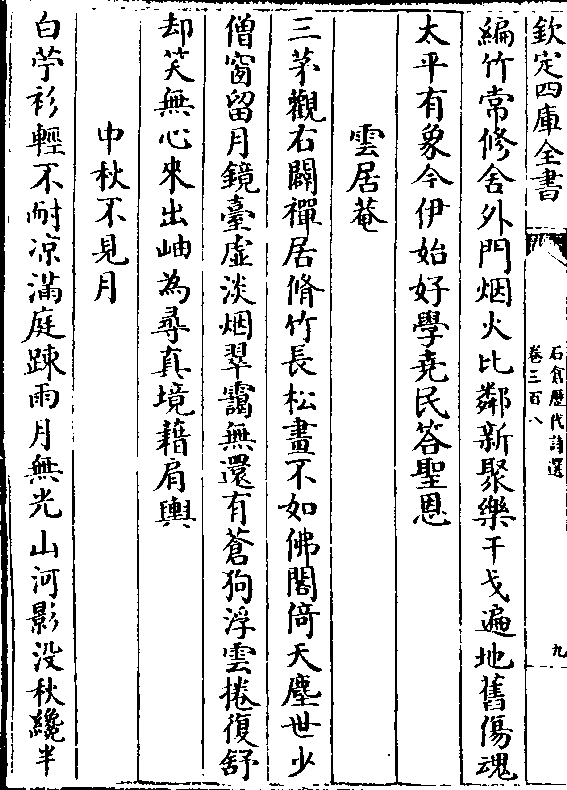 欽定四庫全書
石倉歴代詩選
卷三百八
九
編竹常修舍外門烟火比鄰新聚樂干戈遍地舊傷魂
太平有象今伊始好學堯民答聖恩
雲居菴
三茅觀右闢禪居脩竹長松畫不如佛閣倚天塵世少
僧窗留月鏡臺虛淡烟翠靄無還有蒼狗浮雲捲復舒
却笑無心來出岫為尋真境藉肩輿
中秋不見月
白苧衫輕不耐凉滿庭踈雨月無光山河影没秋纔半